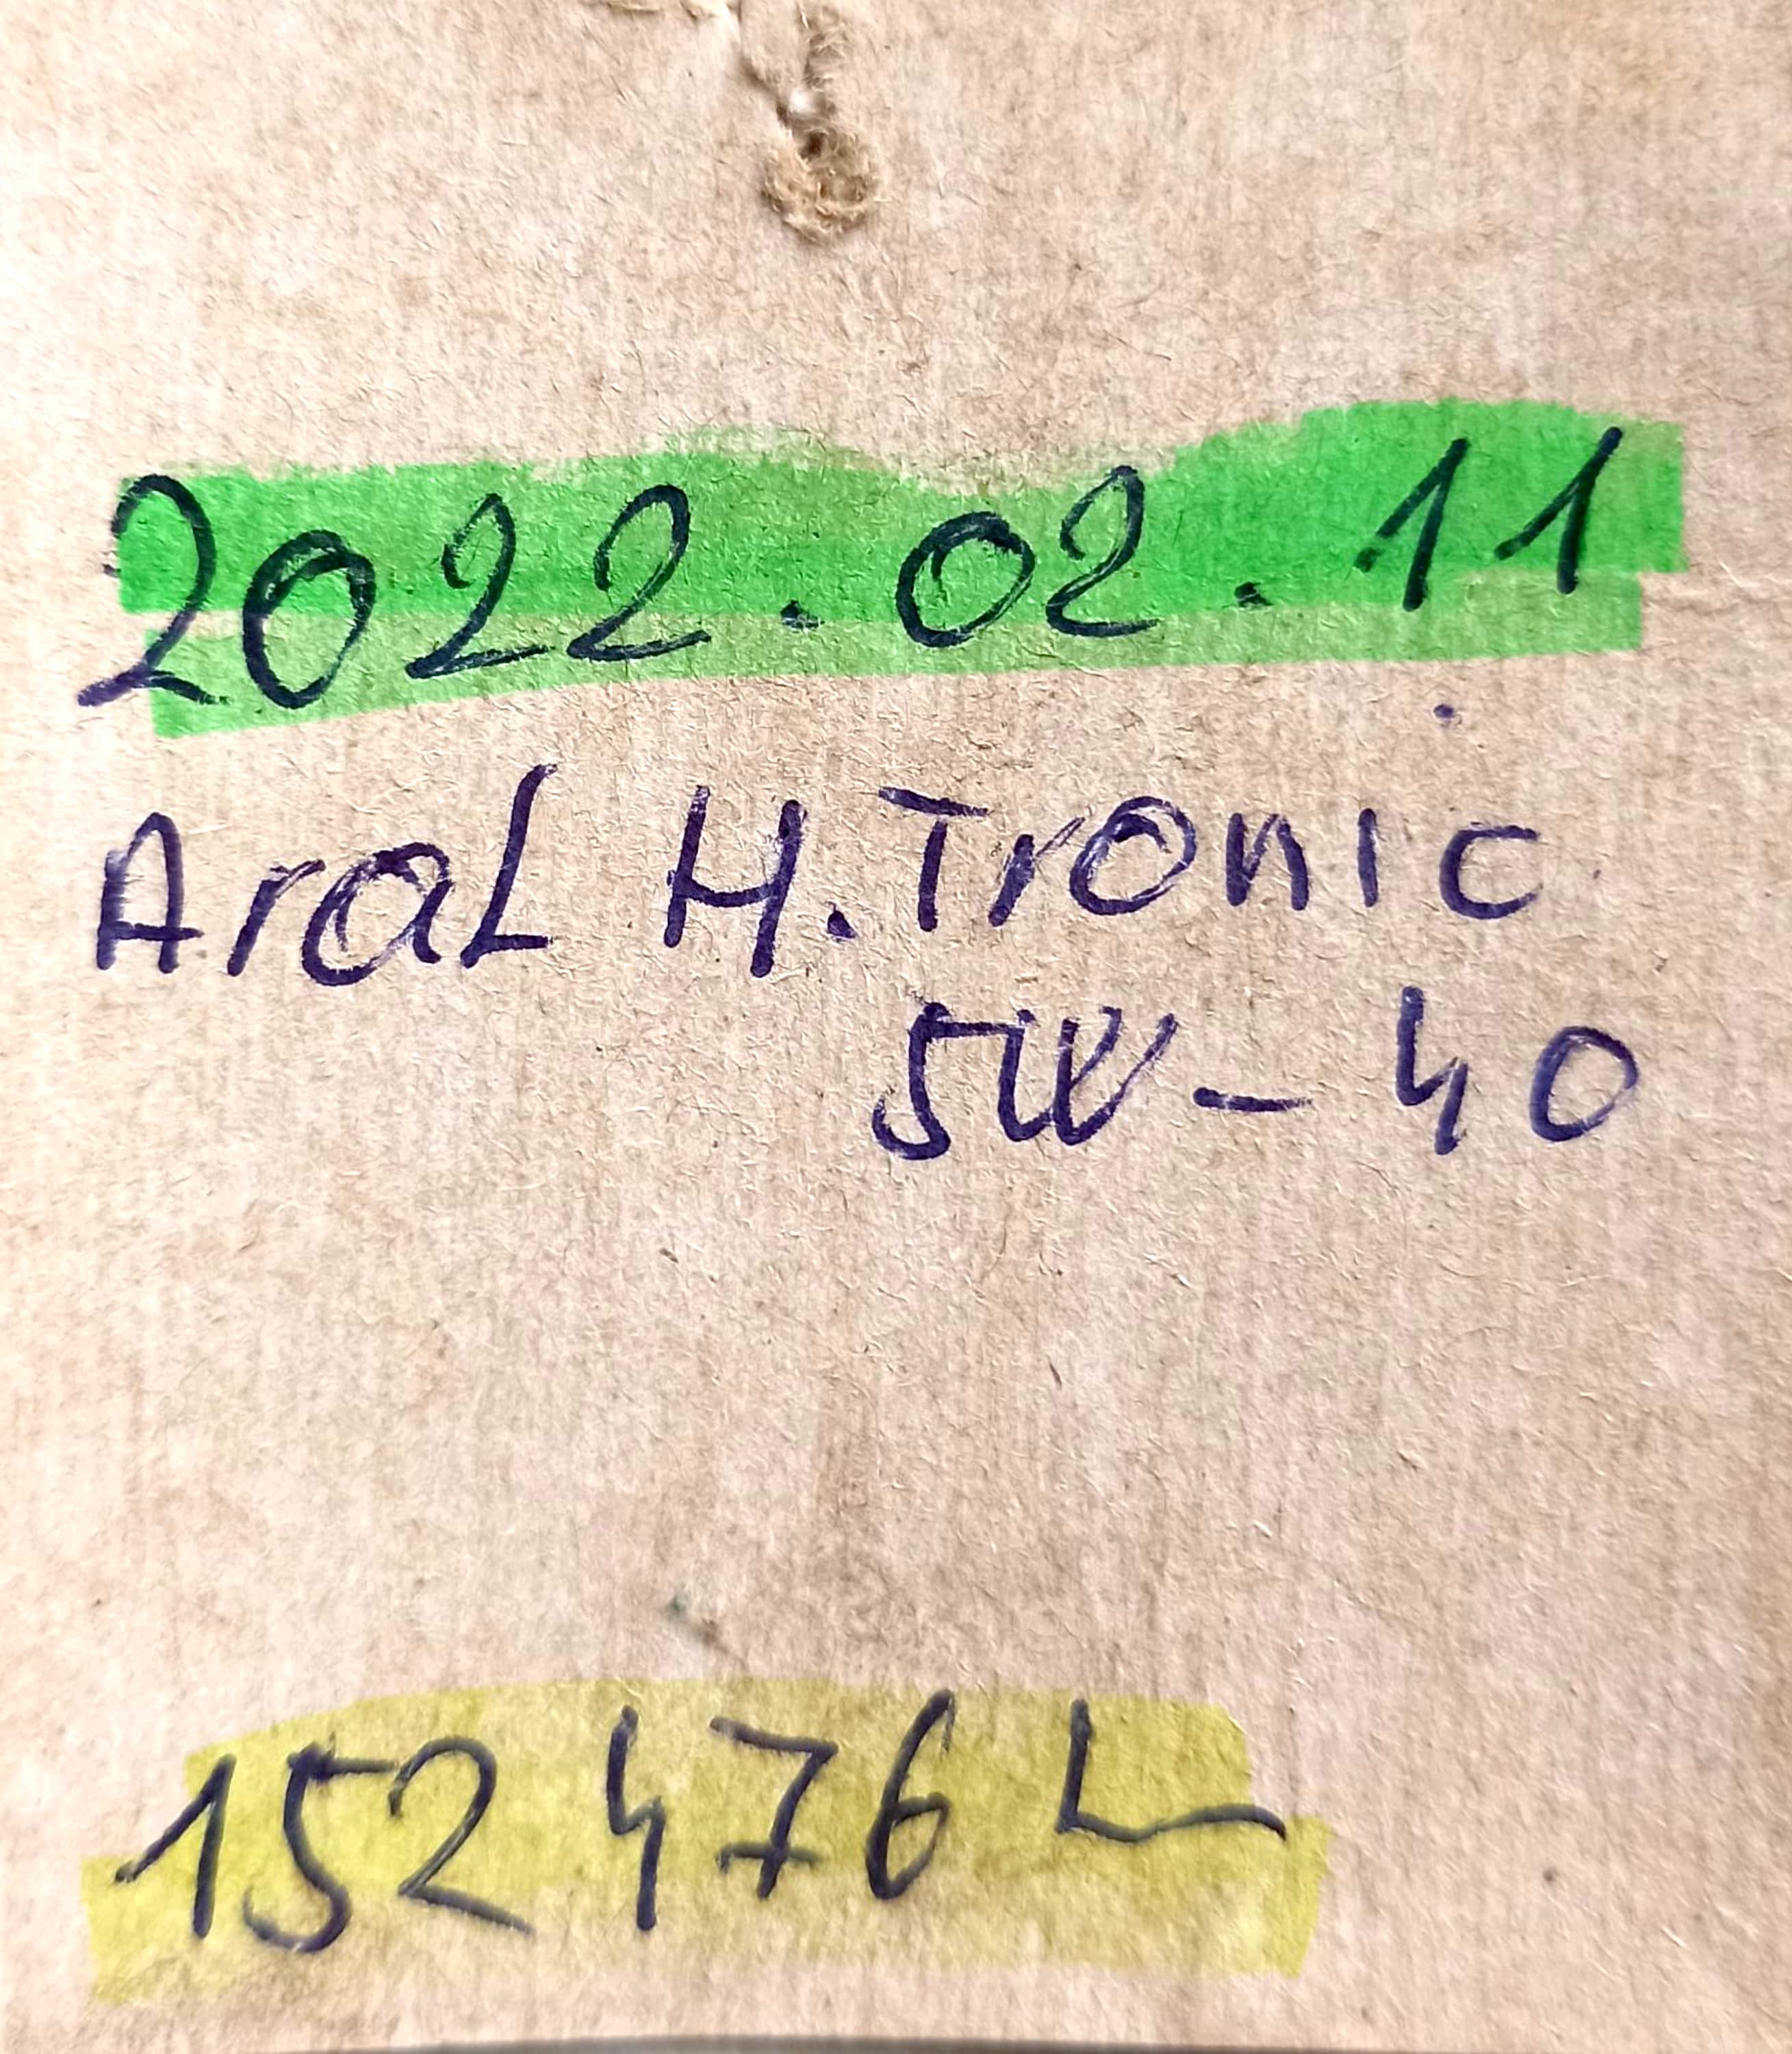 2022.02.11
Aral H.Tronic
5W-40
152476 L